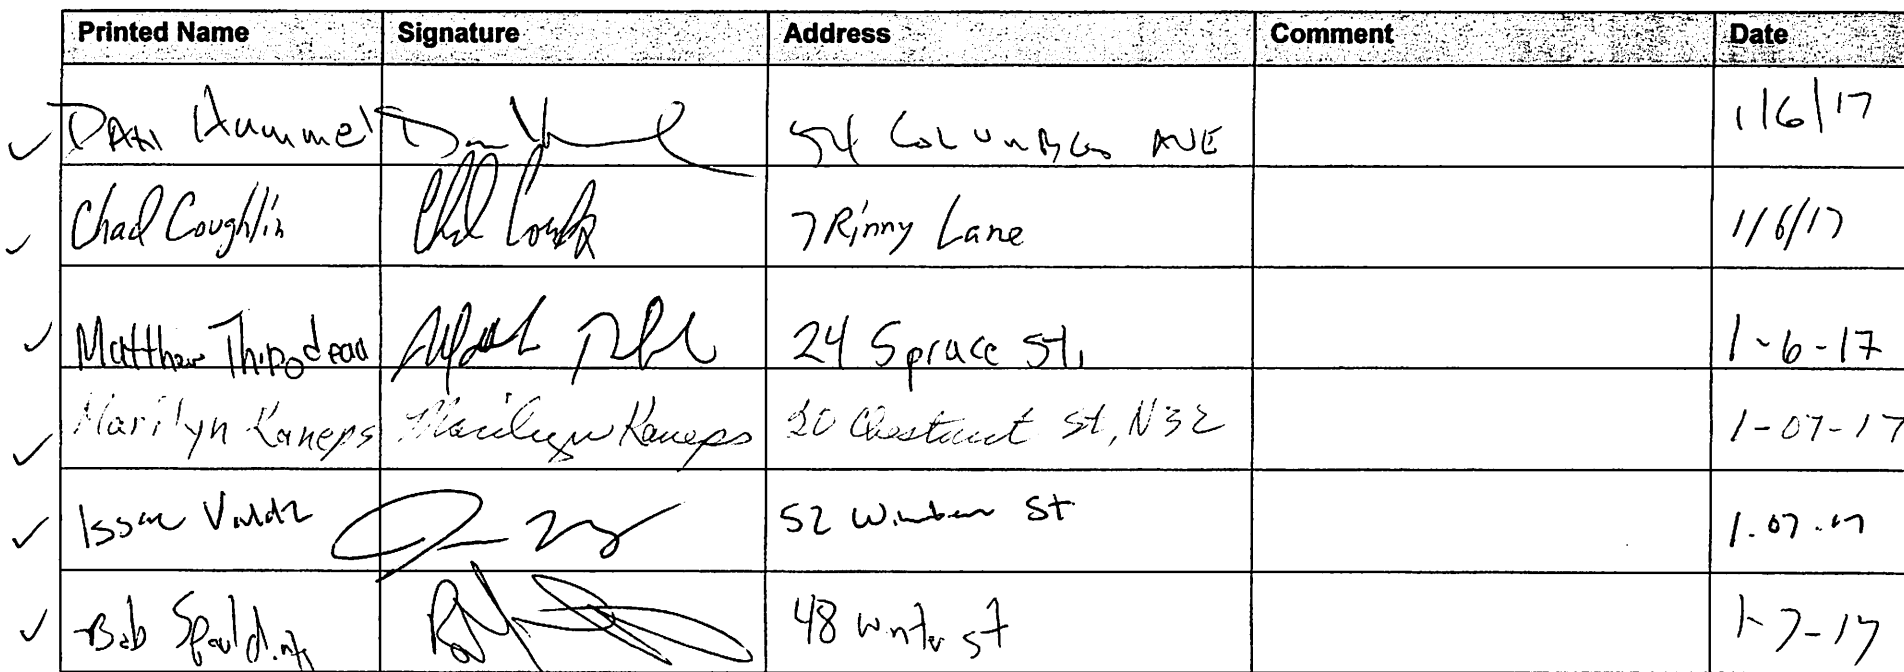 Printed Name Signature Address Comment Date
DAN Hummel 54 COLUMBUS AVE 1/6/17
Chad Coughlin 7 Rinny Lane 1/6/17
Matthew Thibodeau 24 Spruce St. 1-6-17
Marilyn Kaneps Marilyn Kaneps 20 Chestnut St, N32 1-07-17
52 St 1.07.17
Bob Spaulding 48 Winter st 1-7-17